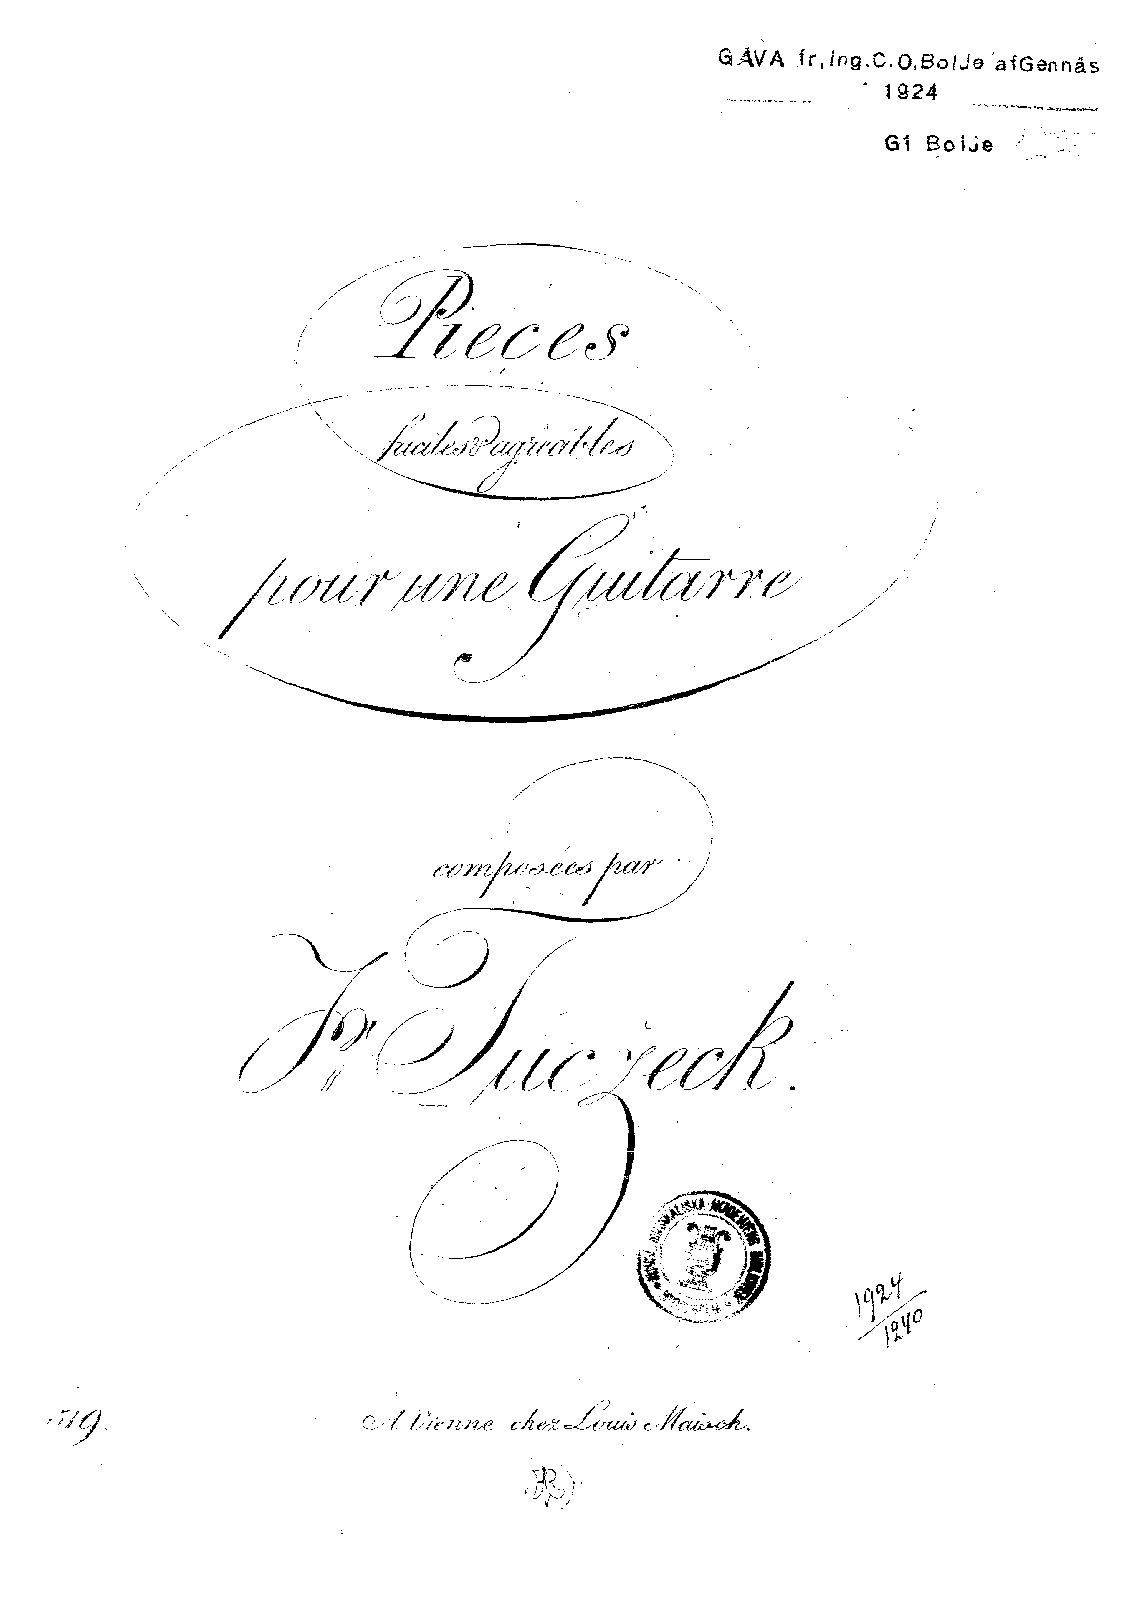 GÅVA fr, Ing. C. O. Boije af Gennäs
1924
G1 Boije
Pieces
faciles & agréables
pour une Guitarre
composées par
Fr. Tuczeck.
1924
1240
519.
A Vienne chez Louis Maisch.